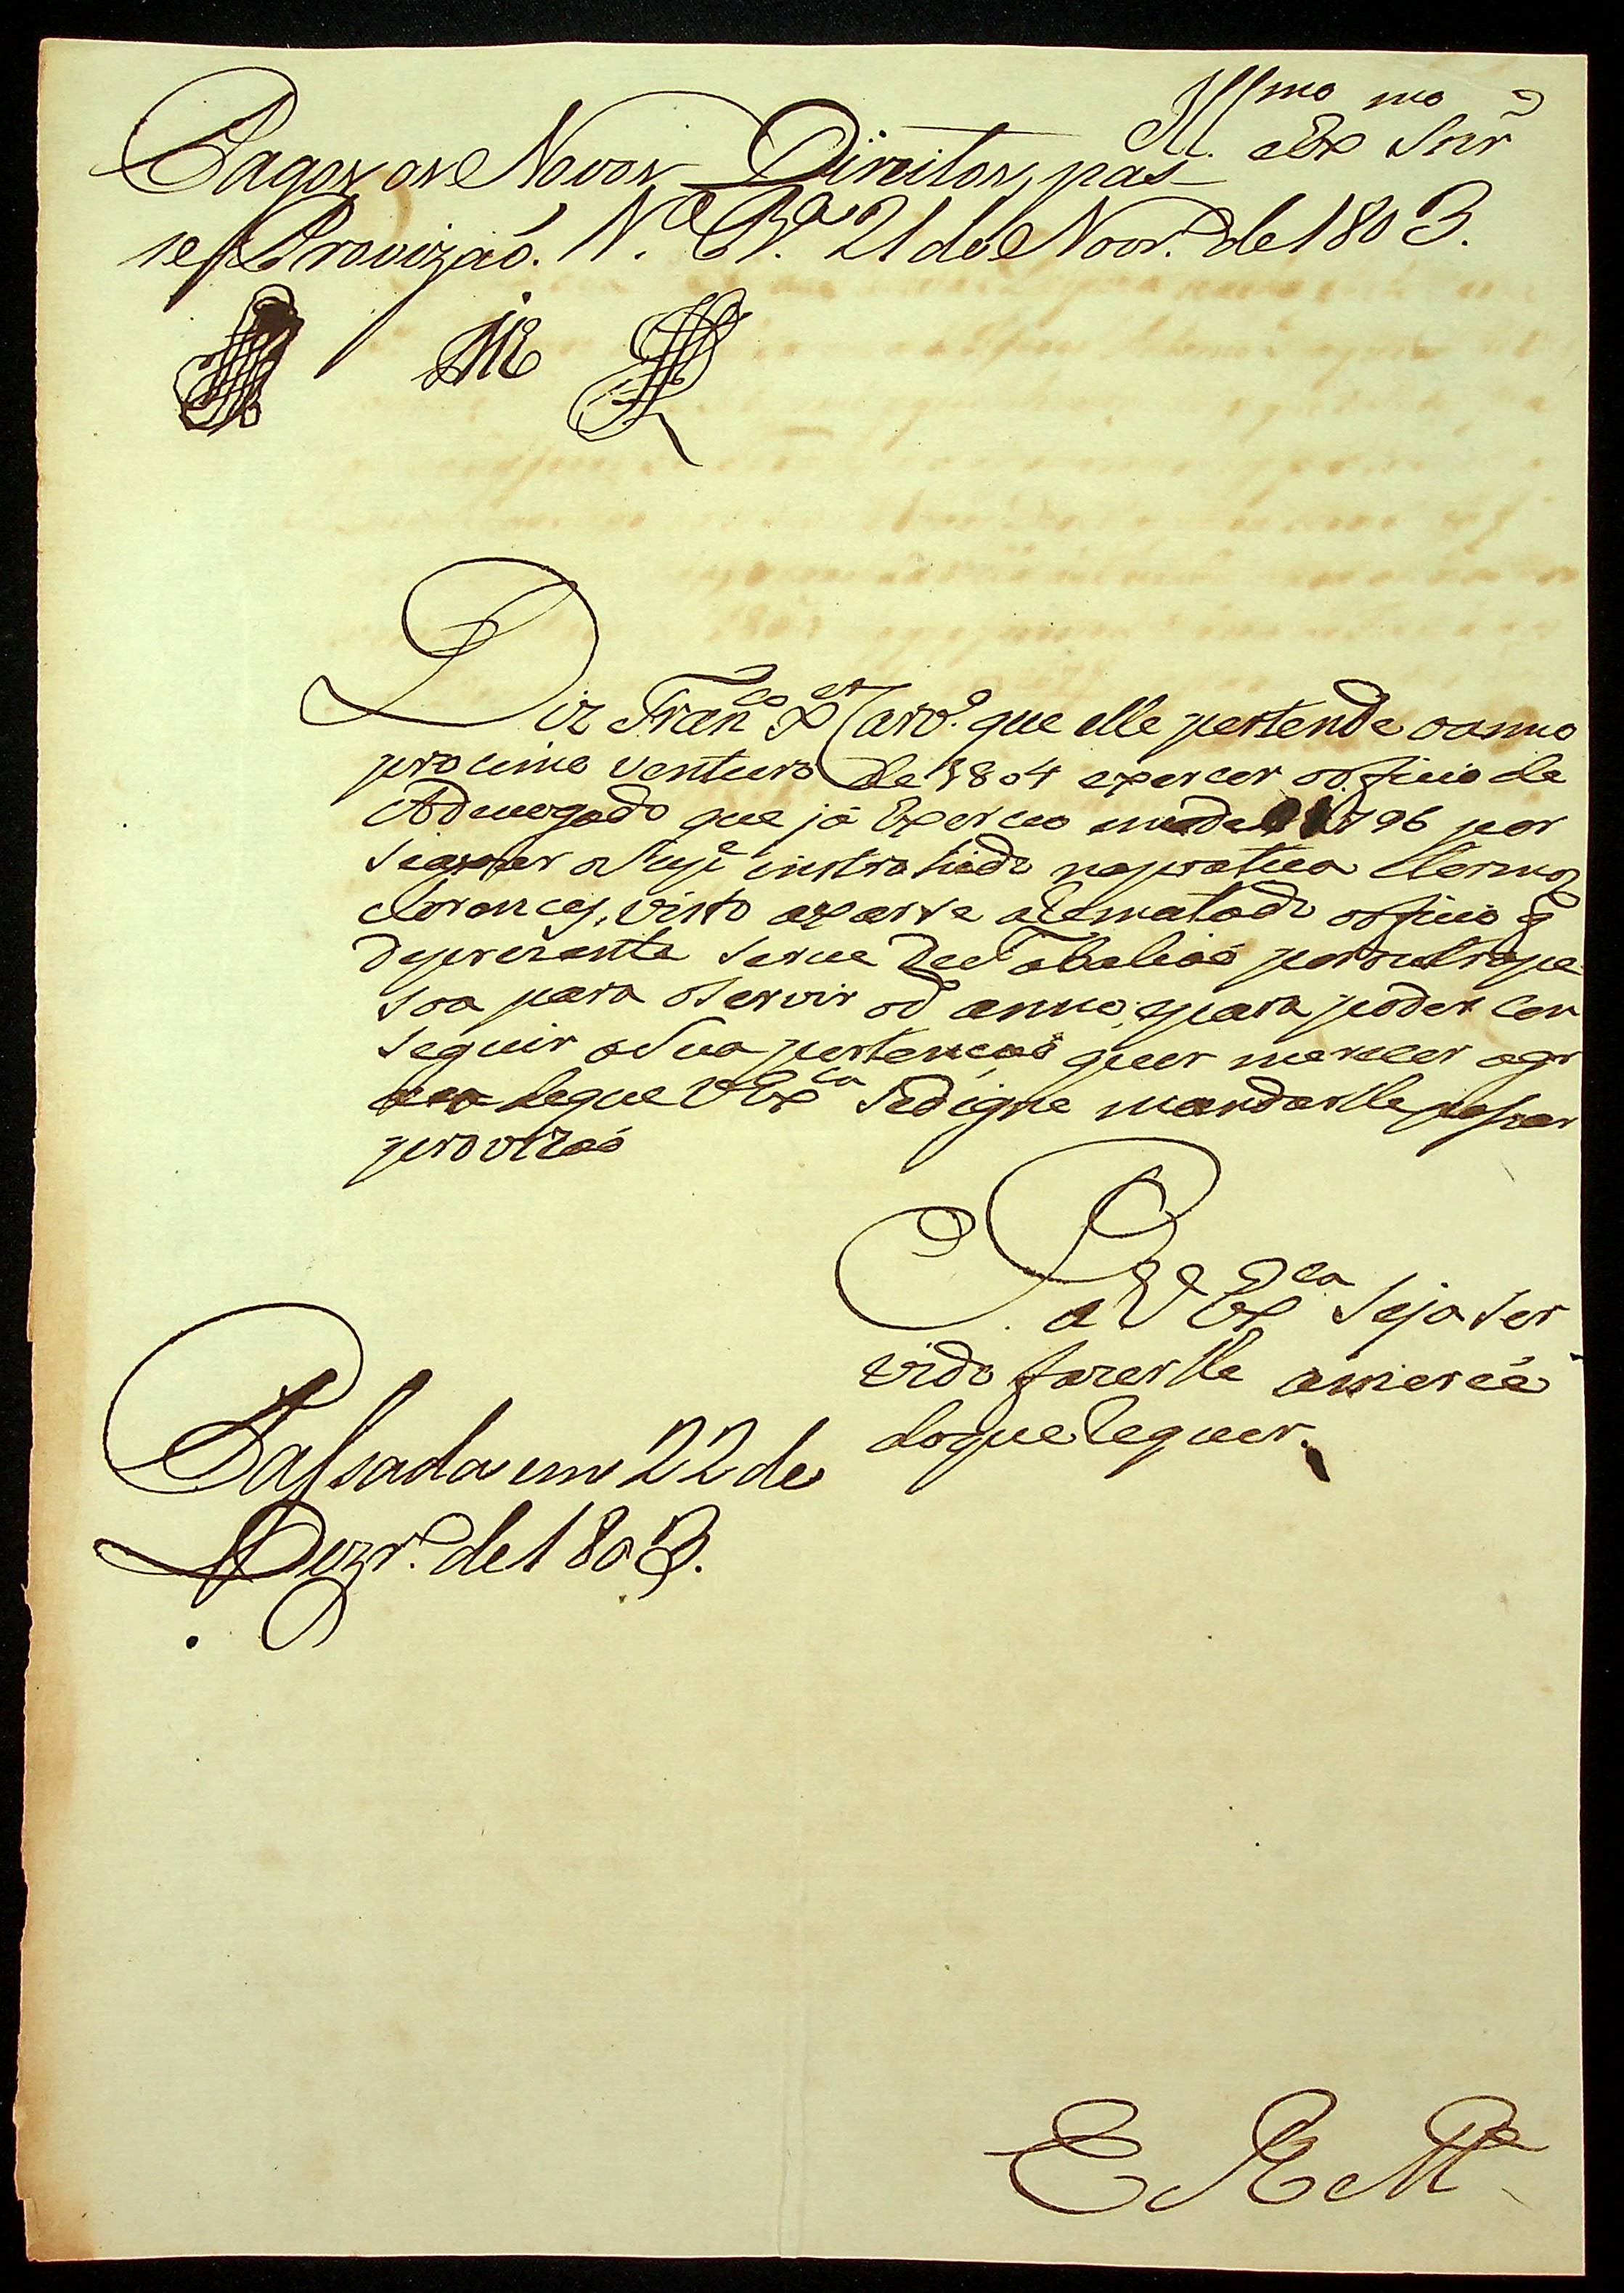 Ill.mo e Ex.mo Snr
Pagos os Novos Direitos, pas
se Provizaõ. N. Ba. 21 de Novr.º de 1803.
Diz Fran.co X.er Carv.º que elle pertende o anno
procimo venturo de 1804 exercer o officio de
Advogado que já Exerceo 1796 por
ser o Sup.e instrohido na pratica
visto remata do officio q
de prezente serve de Tabaliaõ por outra pe
soa para o servir o d anno, e para poder con
seguir a Sua pertençaõ quer merecer a gr
 de que V Ex.ca Se digne mandarlle passar
provizaõ
P
a V Ex.ca Seja Ser
vido fazerlle a merce
do que requer.
Passada em 22 de
Dezr.º de 1803.
E R M.ce